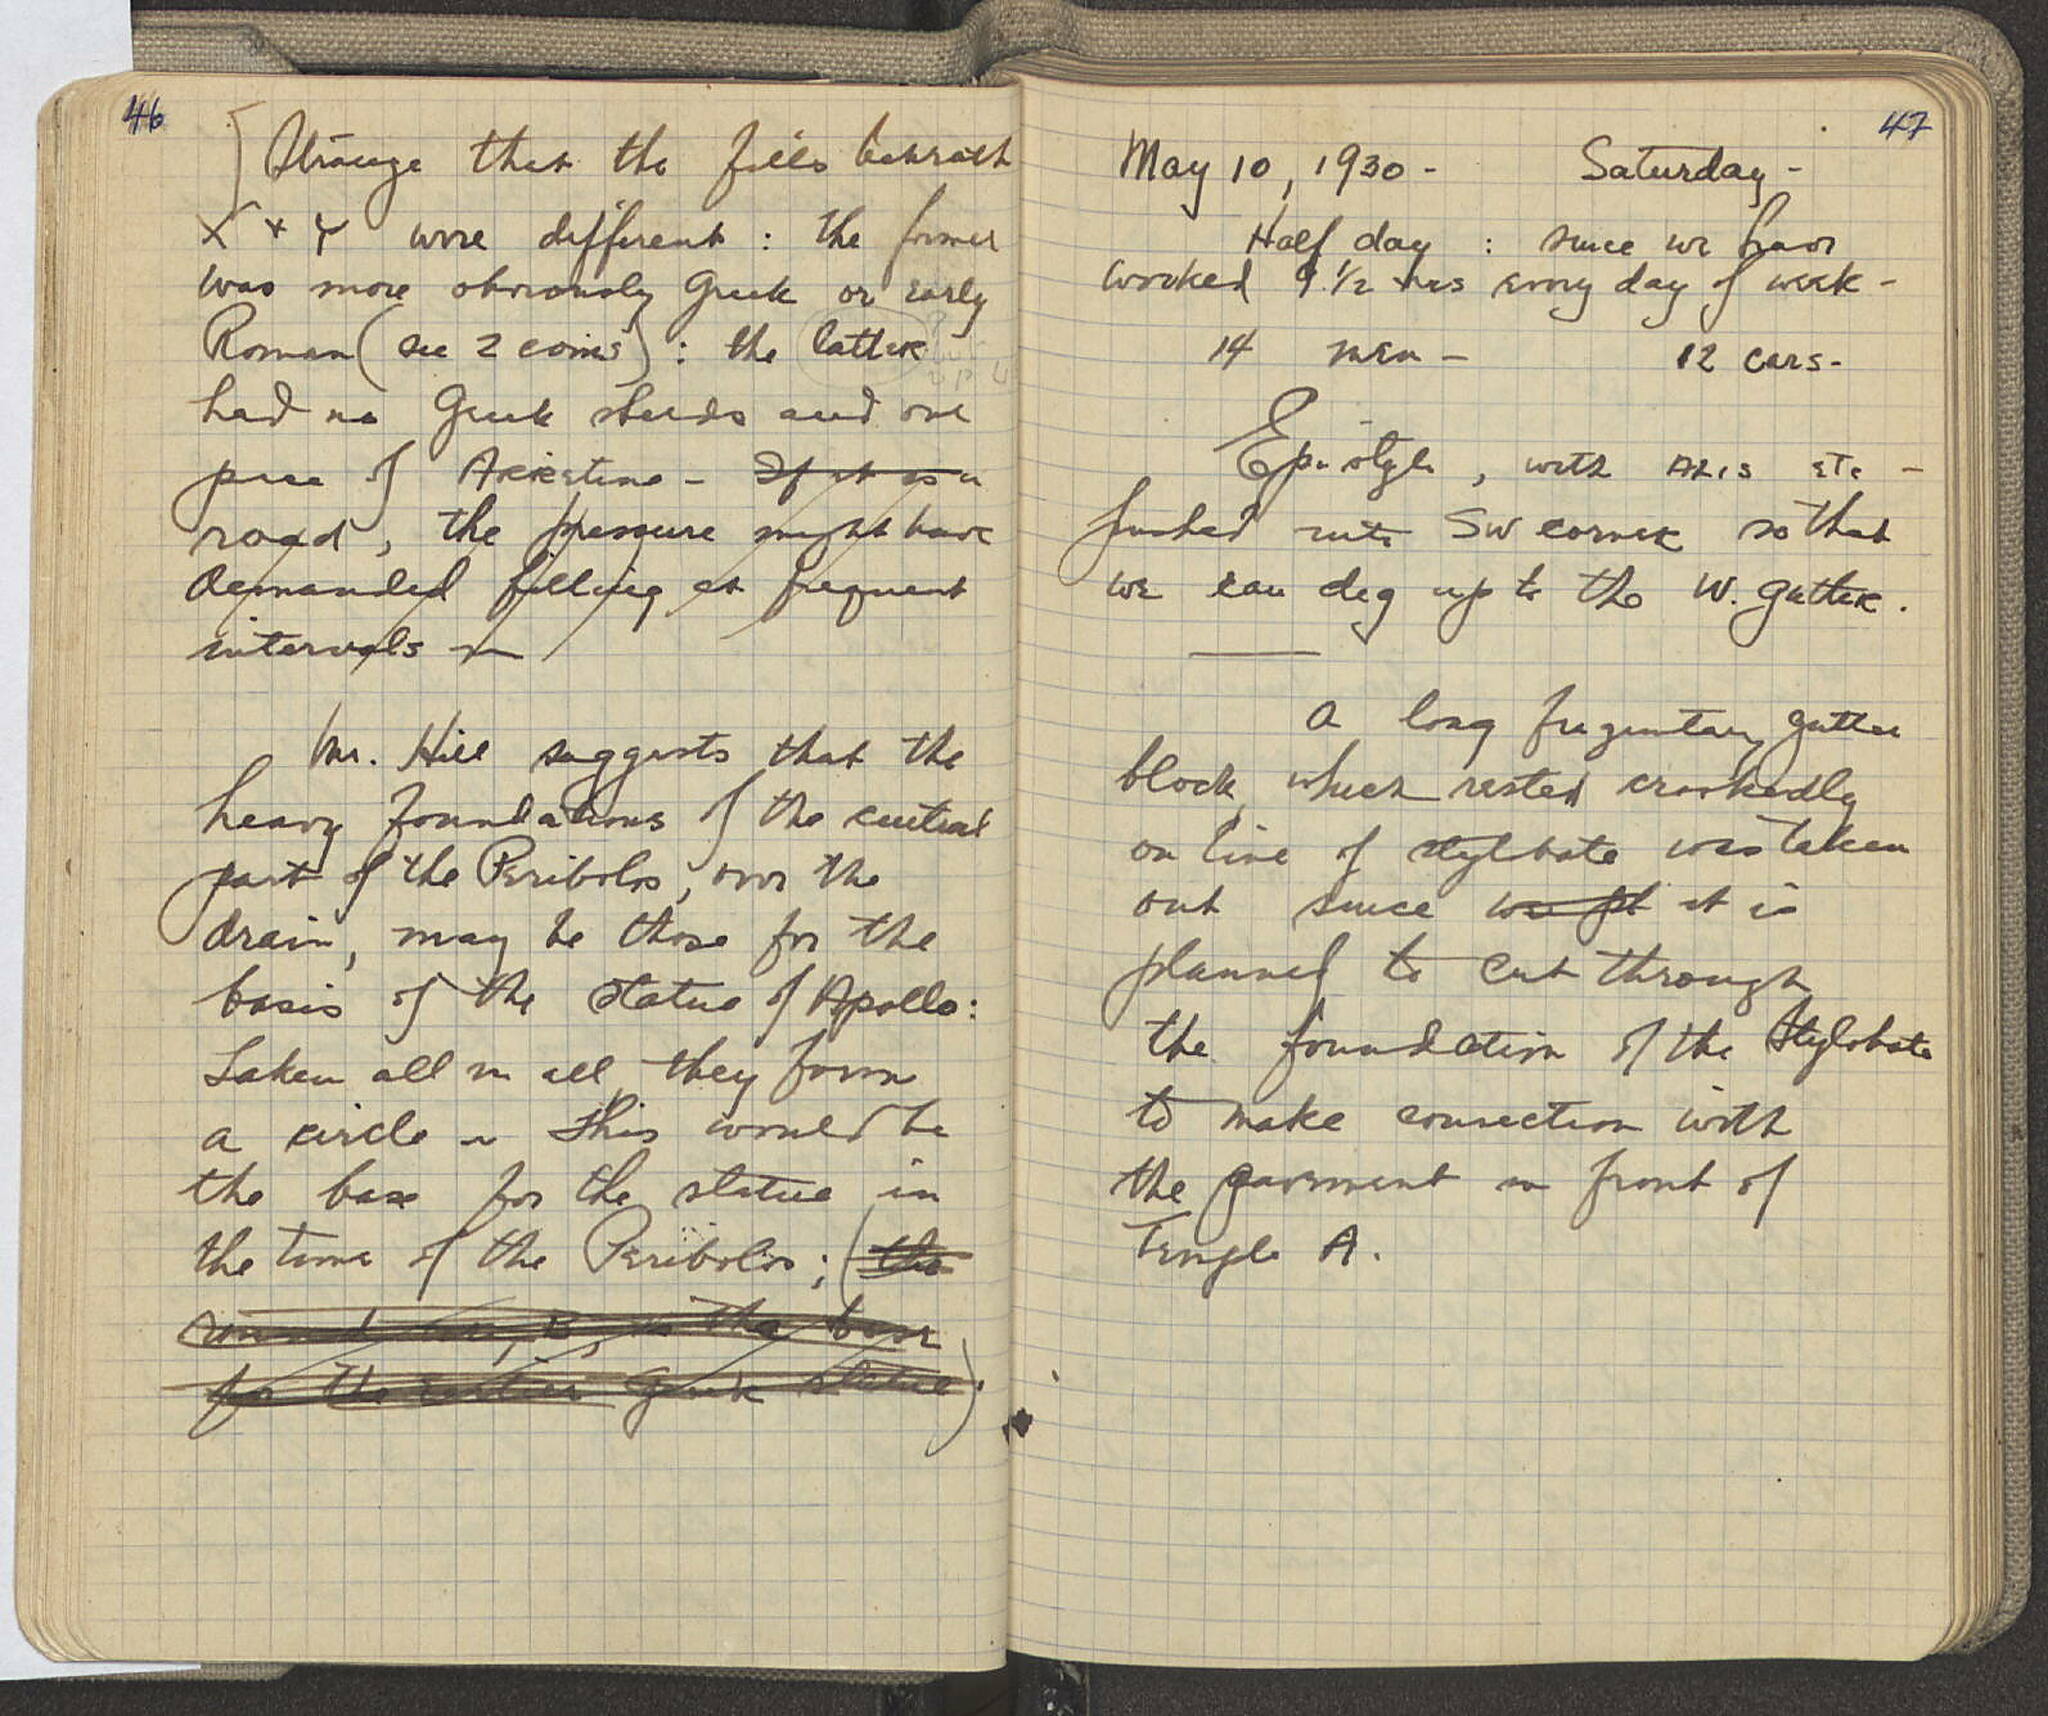 46
Strange that the fills beneath
X + Y were different : the former
was more obviously Greek or early
Roman (see 2 coins) : the latter
had no Greek sherds and one
piece of Arretine - If it is a
road, the pressure might have
demanded filling at frequent
intervals
Mr. Hill suggests that the
heavy foundations of the central
part of the Peribolos, over the
drain, may be those for the
basis of the statue of Apollo:
Taken all in all they form
a circle ~ This would be
the base for the statue in
the time of the Peribolos; (the
round the base
for the earlier Greek statue).
47
May 10, 1930 - Saturday -
Half day : since we have
worked 9 1/2 hrs every day of week -
14 men - 12 cars.
Epistyle, with etc -
pushed into SW corner so that
we can dig up to the W. gutter.
a long fragmentary gutter
block, which rested crookedly
on line of stylbate was taken
out since it is
planned to cut through
the foundation of the Stylobate
to make connection with
the pavement in front of
Temple A.